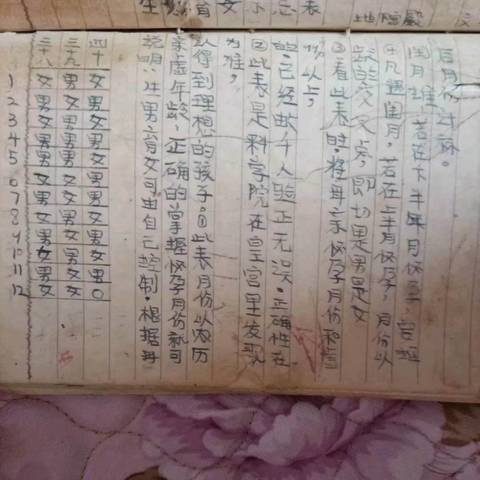 生 育女示 表
四十 女男女男女男男女男女男〇
三十九 男女男男男女男女男女男女
三十八 女男女男男女男女男女男女
1
2
3
4
5
6
7
8
9
10
11
12
说明:生男育女可由自己控制。根据母
亲虚年龄,正确的掌握怀孕月份就可
以得到理想的孩子。①此表月份以农历
为准,
②此表是科学院在皇宫里发现
的已经数千人验正无误。正确性在
份以上,
③看此表时,将母亲怀孕月份和
线的交叉点,即切是男是女
④凡遇闰月,若在上半年月怀孕,月份以
闰月推,若在下半年月怀孕,
后月份计